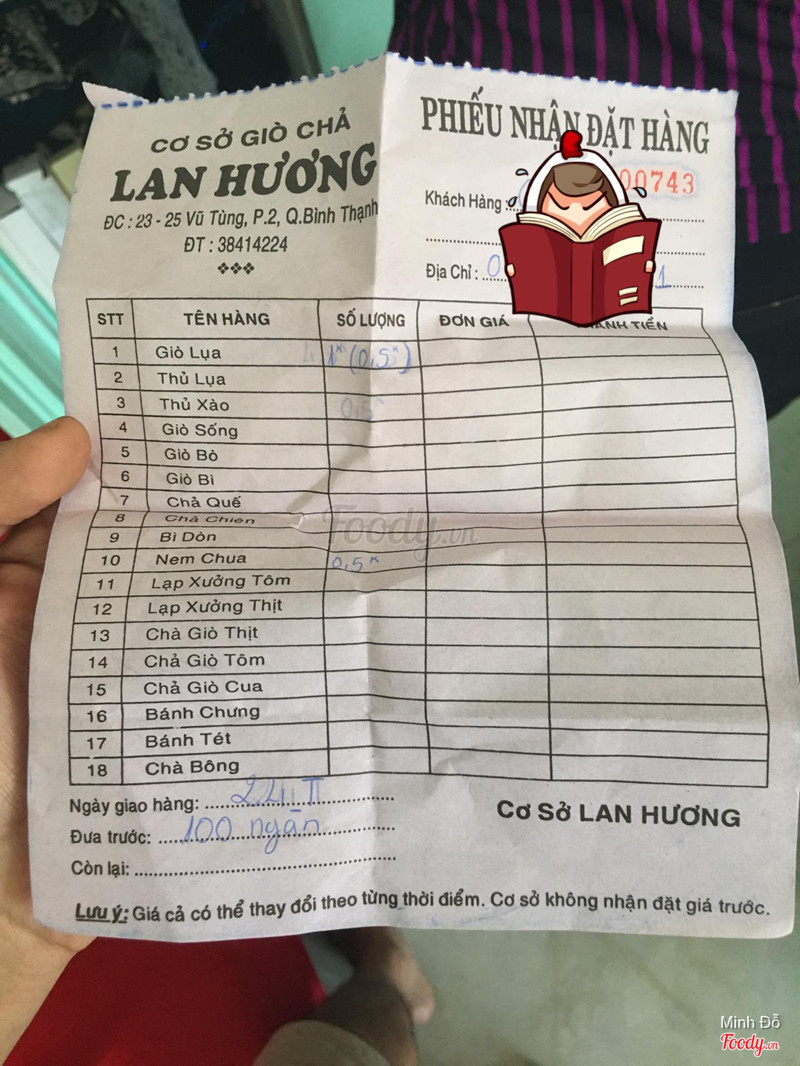 CƠ SỞ GIÒ CHẢ
LAN HƯƠNG
ĐC : 23 - 25 Vũ Tùng, P.2, Q.Bình Thạnh
ĐT : 38414224
PHIẾU NHẬN ĐẶT HÀNG
00743
Khách Hàng :
Địa Chỉ : 0 1
STT TÊN HÀNG SỐ LƯỢNG ĐƠN GIÁ THÀNH TIỀN
1 Giò Lụa 1K (0,5K)
2 Thủ Lụa
3 Thủ Xào 0,5K
4 Giò Sống
5 Giò Bò
6 Giò Bì
7 Chả Quế
8 Chả Chiên
9 Bì Dòn
10 Nem Chua 0,5K
11 Lạp Xưởng Tôm
12 Lạp Xưởng Thịt
13 Chà Giò Thịt
14 Chả Giò Tôm
15 Chả Giò Cua
16 Bánh Chưng
17 Bánh Tét
18 Chà Bông
Ngày giao hàng:
Đưa trước: 100 ngàn
Còn lại:
Cơ Sở LAN HƯƠNG
Lưu ý: Giá cả có thể thay đổi theo từng thời điểm. Cơ sở không nhận đặt giá trước.
Foody.vn
Minh Đỗ
Foody.vn